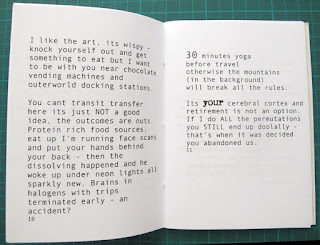 I like the art, its wispy -
knock yourself out and get
something to eat but I want
to be with you near chocolate
vending machines and
outerworld docking stations.
You cant transit transfer
here its just NOT a good
idea, the outcomes are nuts.
Protein rich food sources,
eat up I'm running face scans
and put your hands behind
your back - then the
dissolving happened and he
woke up under neon lights all
sparkly new. Brains in
halogens with trips
terminated early - an
accident?
10
30 minutes yoga
before travel
otherwise the mountains
(in the background)
will break all the rules.
Its your cerebral cortex and
retirement is not an option.
If I do ALL the permutations
you STILL end up doolally -
that's when it was decided
you abandoned us.
11